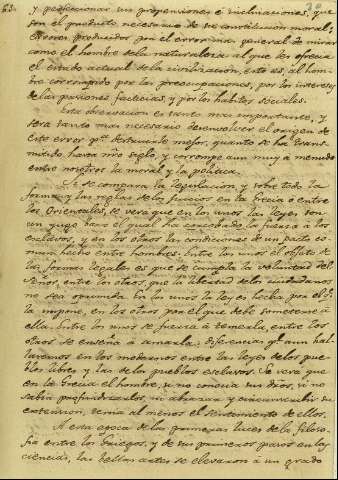 y perfeccionar sus propensiones é inclinaciones, que
son el producto necesario de su constitucion moral;
errores producidos por el error mas general de mirar
como el hombre de la naturaleza al que les ofrecia
el estado actual de la civilizacion, esto es, al hom-
bre corrompido por las preocupaciones, por los intereses
de las pasiones facticias, y por los habitos sociales.
Esta observacion es tanto mas importante, y
será tanto mas necesario desenvolver el origen de
este error pª destruirle mejor, quanto se ha trans-
mitido hasta nro siglo, y corrompe aun muy á menudo
entre nosotros la moral y la politica.
Si se compara la legislacion, y sobre todo la
forma y las reglas de los juicios en la Grecia ó entre
los Orientales, se verá que en los unos las leyes son
un yugo baxo el qual ha encorbado la fuerza á los
esclavos, y en los otros las condiciones de un pacto co-
mun hecho entre hombres. Entre los unos el objeto de
las formas legales es que se cumpla la voluntad del
Señor, entre los otros, que la libertad de los ciudadanos
no sea oprimida. En los unos la ley es hecha por el qe
la impone, en los otros por el que debe someterse á
ella. Entre los unos se fuerza á temerla, entre los
otros se enseña á amarla; diferencias qe aun hal-
laremos en los modernos entre las leyes de los pue-
blos libres, y las de los pueblos esclavos. Se verá que
en la Grecia el hombre, si no conocia sus dros, si no
sabia profundizarlos, ni abrazar y circunscribir su
extension, tenia al menos el sentimiento de ellos.
A esta epoca de las primeras luces de la filoso-
fia entre los Griegos, y de sus primeros pasos en las
ciencias, las bellas artes se elevaron á un grado